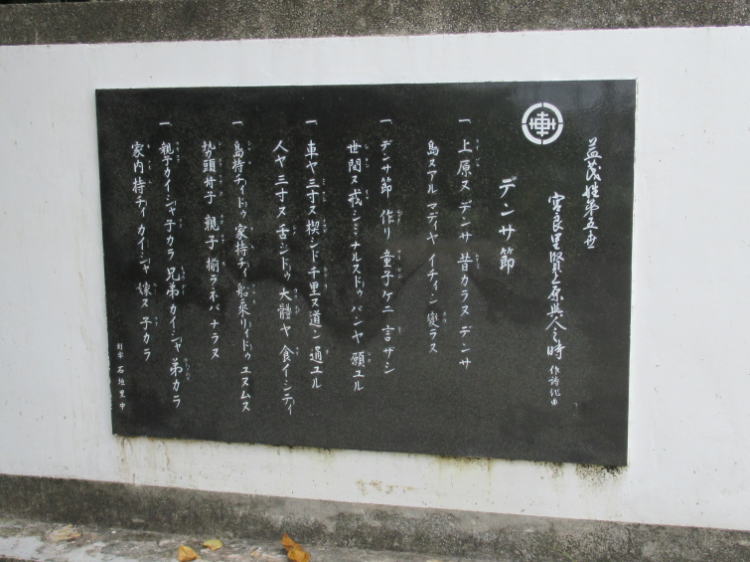 益茂姓第五世
宮良里賢上原与人之時 作詩作曲
デンサ節
一 上原ヌ デンサ 昔カラヌ デンサ
島ヌアル マディヤ イチィン 変ラヌ
一 デンサ節 作リ 童子ケニ 言ザシ
世間ヌ 戒シミ ナルスドゥ バンヤ 願ユル
一 車ヤ 三寸ヌ 楔シド 千里ヌ 道ン 通ユル
人ヤ 三寸ヌ 舌シドゥ 大體ヤ 食イシディ
一 島持チィドゥ 家持チィ 船乗リィドゥ ユヌムヌ
船頭 親子 揃ラネバ ナラヌ
一 親子カイシャ 子カラ 兄弟カイシャ 弟カラ
家内持チィ カイシャ 嫁ヌ 子カラ
石垣里中